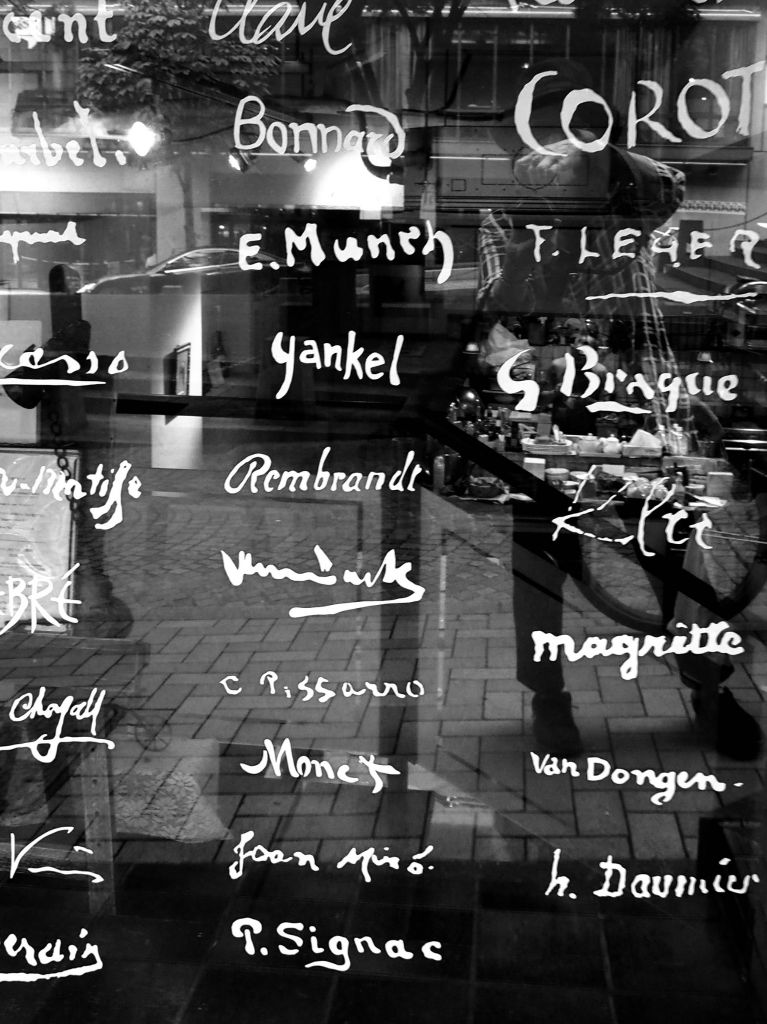 cent
Clavé
Bonnard
COROT
arbet.
E. Munch
F. LEGER
casso
yankel
G Braque
H-Matisse
Rembrandt
Klee
BRÉ
Vlaminck
magritte
Chagall
C Pissarro
Monet
Van Dongen.
Joan Miró.
h. Daumier
erain
P. Signac